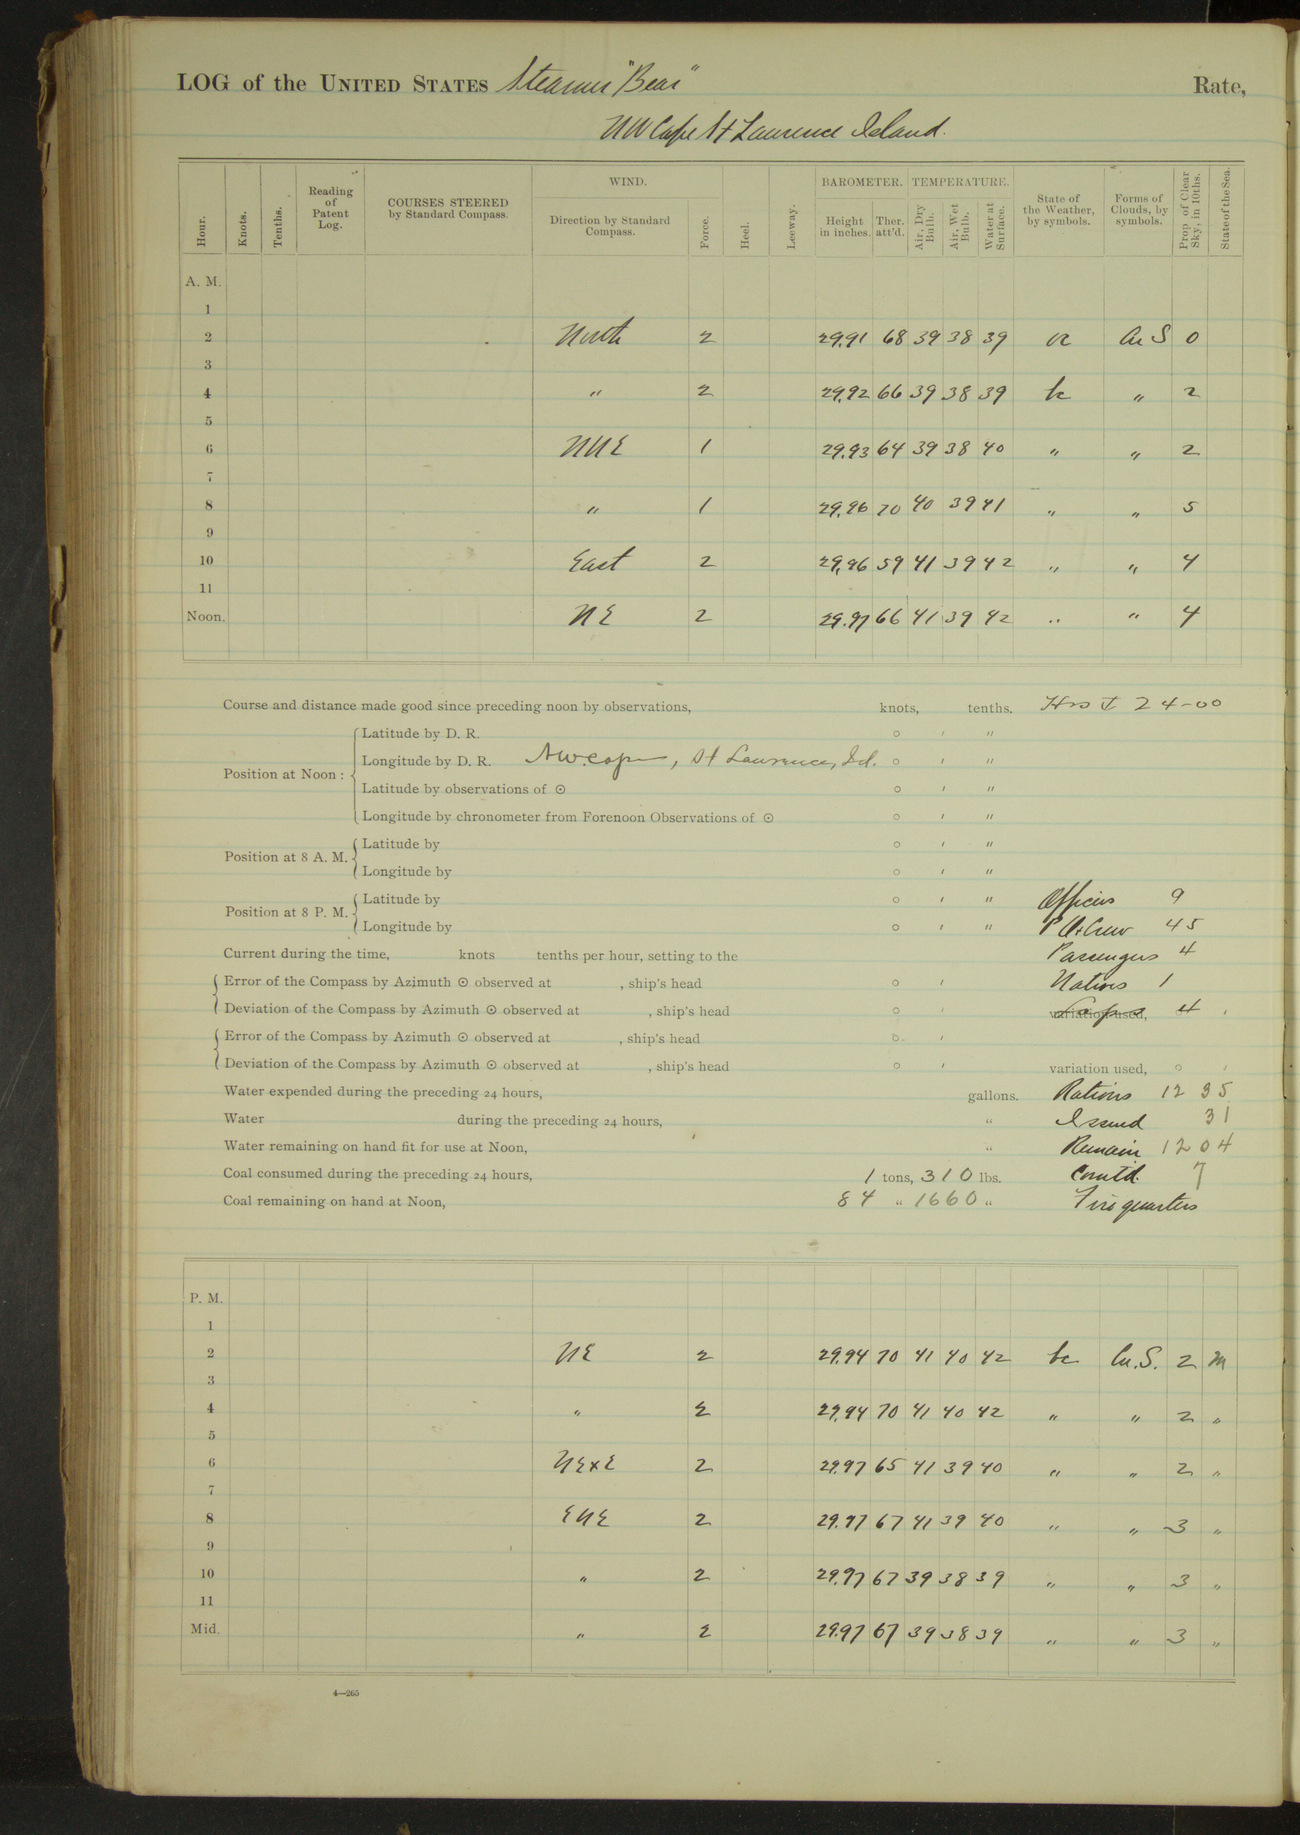 LOG of the UNITED STATES Steamer "Bear" Rate,
NW Cape St Laurence Island.
Hour. Knots. Tenths. Reading of Patent Log. COURSES STEERED by Standard Compass. WIND. Direction by Standard Compass. Force. Heel. Leeway. BAROMETER. Height in inches. Ther. att'd. TEMPERATURE. Air, Dry Bulb. Air, Wet Bulb. Water at Surface. State of the Weather, by symbols. Forms of Clouds, by symbols. Prop. of Clear Sky, in 10ths. State of the Sea.
A. M.
1
2 North 2 29.91 68 39 38 39 oc Cu S 0
3
4 " 2 29.92 66 39 38 39 bc " 2
5
6 NNE 1 29.93 64 39 38 40 " " 2
7
8 " 1 29.96 70 40 39 41 " " 5
9
10 East 2 29.96 59 41 39 42 " " 4
11
Noon. NE 2 29.97 66 41 39 42 " " 4
Course and distance made good since preceding noon by observations, knots, tenths. 24-00
Position at Noon: Latitude by D. R. ° ' "
Longitude by D. R. NW. cape, St Laurence, Id. ° ' "
Latitude by observations of ⊙ ° ' "
Longitude by chronometer from Forenoon Observations of ⊙ ° ' "
Position at 8 A. M. Latitude by ° ' "
Longitude by ° ' "
Position at 8 P. M. Latitude by ° ' " Officers 9
Longitude by ° ' " P O + Crew 45
Current during the time, knots tenths per hour, setting to the Passengers 4
Error of the Compass by Azimuth ⊙ observed at , ship's head ° ' Natives 1
Deviation of the Compass by Azimuth ⊙ observed at , ship's head ° ' variation used, Lapps 4 '
Error of the Compass by Azimuth ⊙ observed at , ship's head ° '
Deviation of the Compass by Azimuth ⊙ observed at , ship's head ° ' variation used, ° '
Water expended during the preceding 24 hours, gallons. Rations 1235
Water during the preceding 24 hours, " Issued 31
Water remaining on hand fit for use at Noon, " Remain 1204
Coal consumed during the preceding 24 hours, 1 tons, 310 lbs. Comtd. 7
Coal remaining on hand at Noon, 84 " 1660 " Fire quarters
P. M.
1
2 NE 2 29.94 70 41 40 42 bc Cu. S. 2 M
3
4 " 2 29.94 70 41 40 42 " " 2 "
5
6 NExE 2 29.97 65 41 39 40 " " 2 "
7
8 ENE 2 29.97 67 41 39 40 " " 3 "
9
10 " 2 29.97 67 39 38 39 " " 3 "
11
Mid. " 2 29.97 67 39 38 39 " " 3 "
4—265